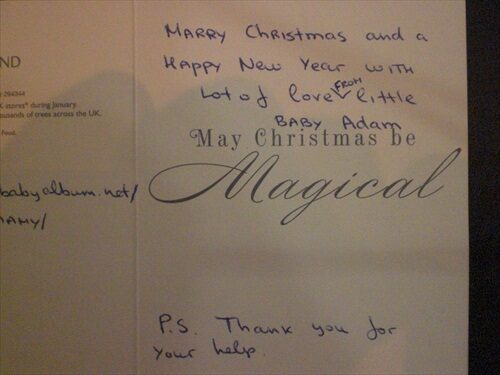 ND
294344
stores* during January.
ousands of trees across the UK.
Food.
babyalbum.net/
MARRY Christmas and a
Happy New Year with
Lot of love FROM little
BABY Adam
May Christmas be
Magical
P.S. Thank you for
your help.